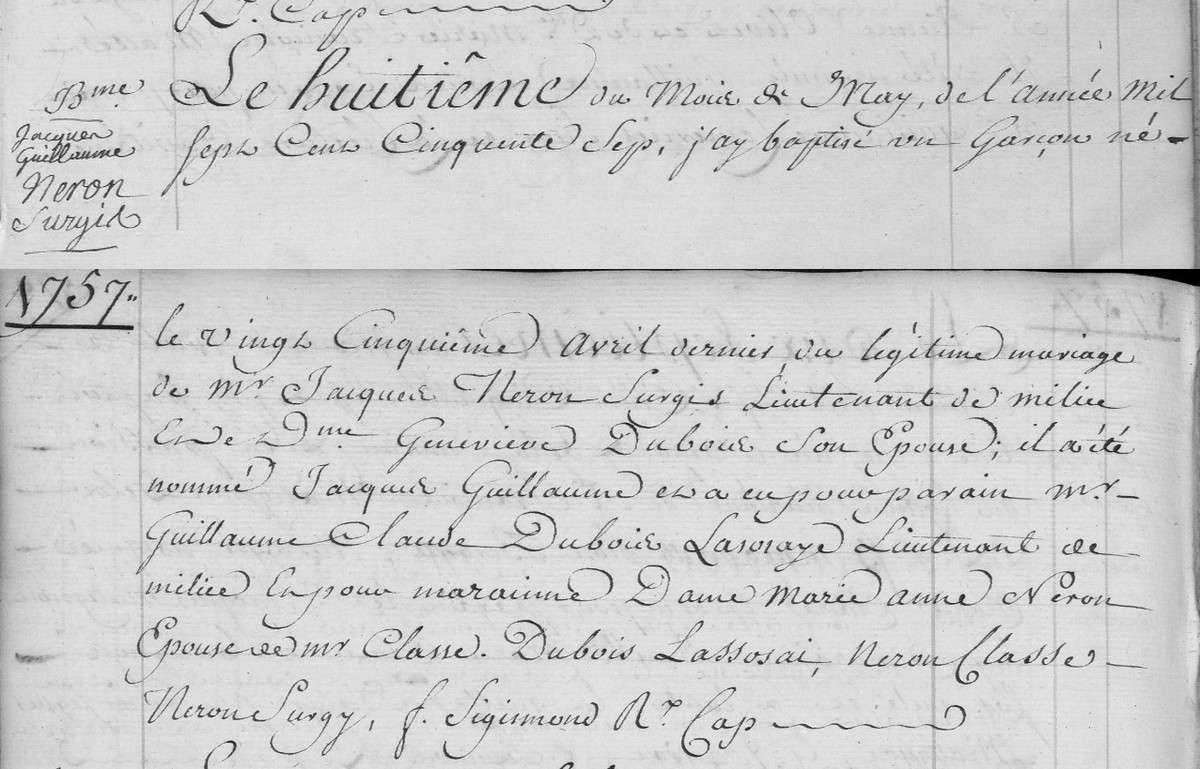 R. Cap
Bme
Jacques
Guillaume
Neron
Surgis
Le huitiême du Mois de May, de l'année mil
sept Cent Cinquente Sep, j'ay baptisé un Garçon né
1757
le vingt Cinquiême avril dernier, du légitime mariage
de mr. Jacques Neron Surgis Lieutenant de milice
Et de Dme Geneviève Dubois Son Epouse; il a été
nommé Jacques Guillaume et a eu pour parain mr
Guillaume Claude Dubois Lasosaye Lieutenant de
milice Et pour marainne Dame Marie anne Neron
Epouse de mr Classe. Dubois Lassosai, Neron Classe
Neron Surgy, f. Sigismond Rx Cap